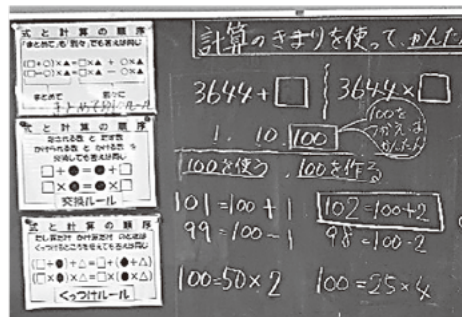 式と計算の順序
「まとめて」も「別々」でも答えは同じ
(□+○)×▲=□×▲ + ○×▲
(□-○)×▲=□×▲ - ○×▲
まとめて 別々に
式と計算の順序
たされる数 と たす数
かけられる数 と かける数 を
交換しても答えは同じ
□+●=●+□
□×●=●×□
交換ルール
式と計算の順序
たし算だけ かけ算だけ のときは
くっつけるところをかえても答えは同じ
(□+●)+△=□+(●+△)
(□×●)×△=□×(●×△)
くっつけルール
計算のきまりを使って、かんた
3644+□ 3644×□
1. 10. 100
100を
つかえば
かんたん
100を使う 100を作る
101=100+1 102=100+2
99=100-1 98=100-2
100=50×2 100=25×4